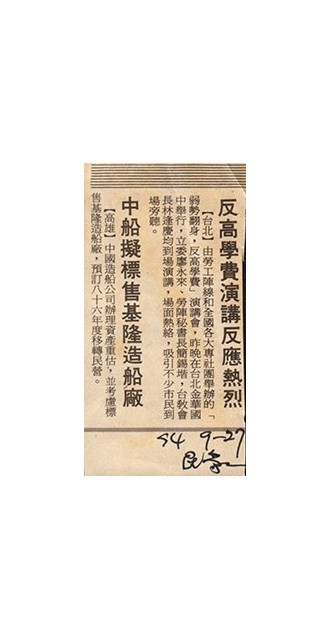 反高學費演講反應熱烈
【台北】由勞工陣線和全國各大專社團舉辦的「
弱勢翻身，反高學費」演講會，昨晚在台北金華國
中舉行，立委廖永來、勞陣秘書長簡錫堦，台教會
長林逢慶均到場演講，場面熱絡，吸引不少市民到
場旁聽。
中船擬標售基隆造船廠
【高雄】中國造船公司辦理資產重估，並考慮標
售基隆造船廠，預訂八十六年度移轉民營。
84 9-27
民眾